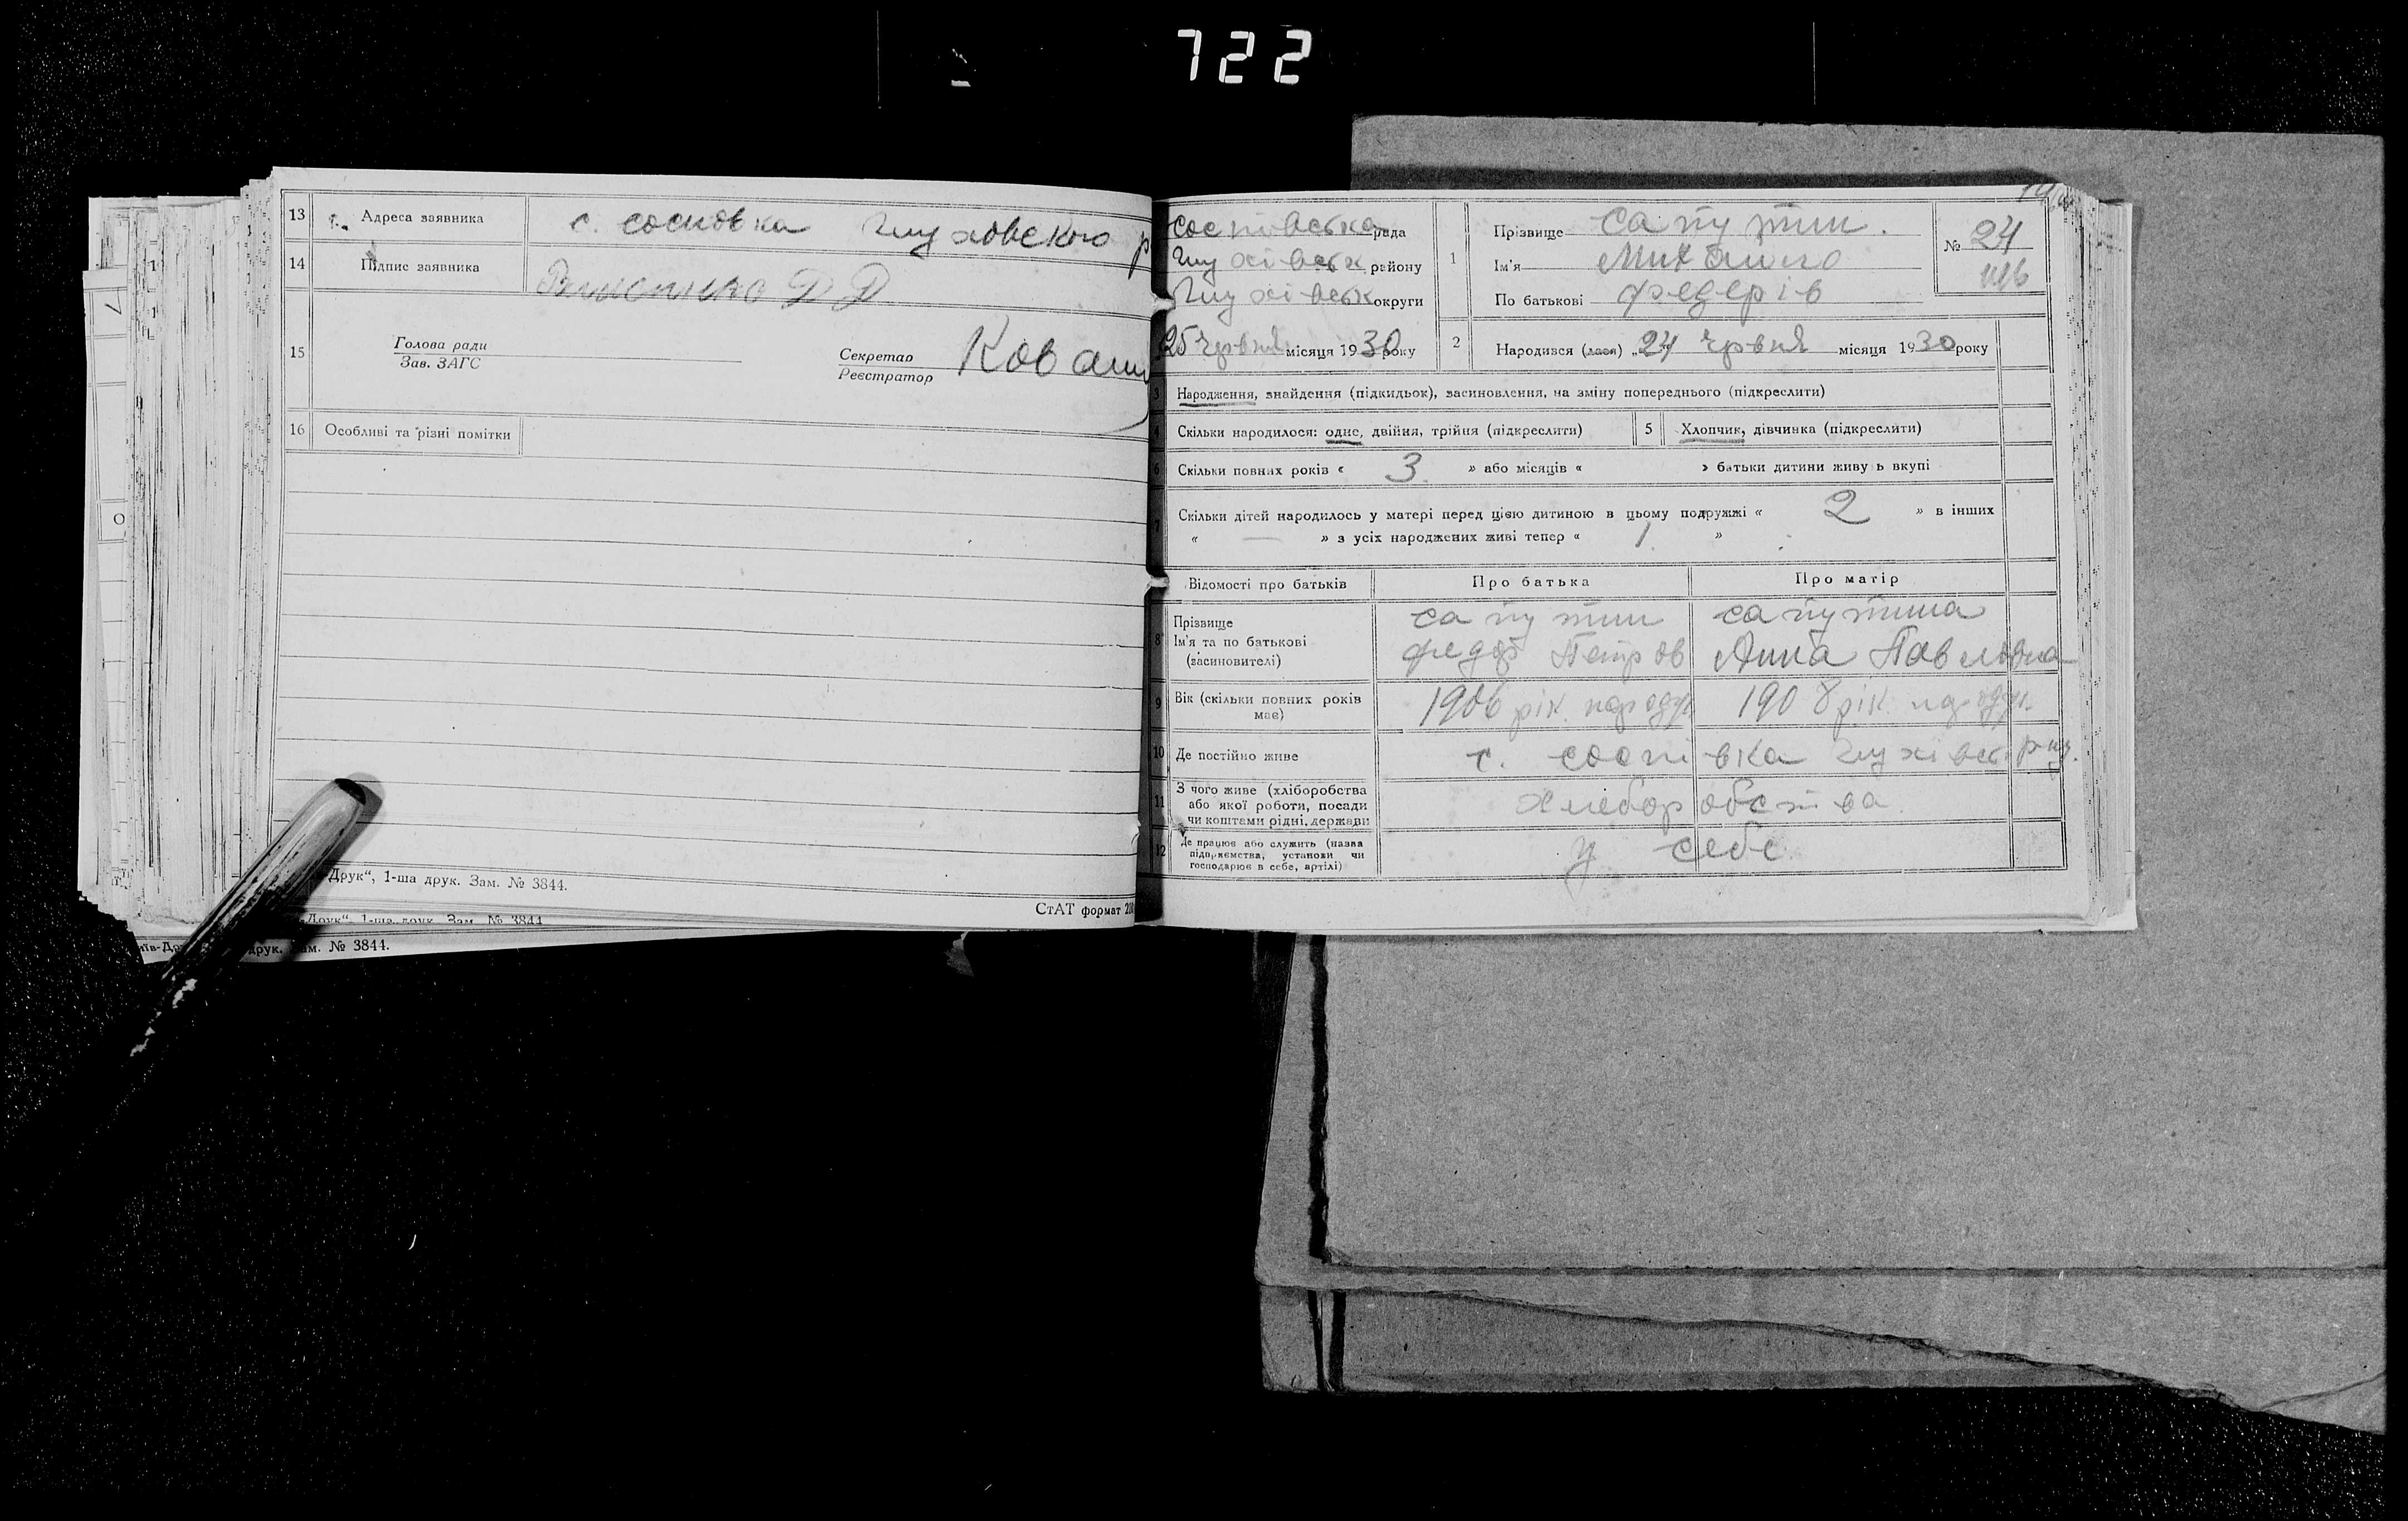 722
13 Адреса заявника с. сосновка Глуховского р
14 Підпис заявника
15 Голова ради
Зав. ЗАГС
Секретар
Реєстратор
16 Особливі та різні помітки
Друк“, 1-ша друк. Зам. № 3844.
СтАТ формат
Друк“, 1-ша друк. Зам. № 3844
друк. Зам. № 3844.
рада
Глухівськ району
Глухівськ округи
25 червня місяця 1930 року
1 Прізвище Сапутин.
Ім'я Михайло
По батькові Федерів
№ 24
2 Народився (лася) „24 червня місяця 1930 року
3 Народження, знайдення (підкидьок), засиновлення, на зміну попереднього (підкреслити)
4 Скільки народилося: одне, двійня, трійня (підкреслити) 5 Хлопчик, дівчинка (підкреслити)
6 Скільки повних років « 3 » або місяців « » батьки дитини живуть вкупі
7 Скільки дітей народилось у матері перед цією дитиною в цьому подружжі « 2 » в інших
« — » з усіх народжених живі тепер « 1 »
Відомості про батьків Про батька Про матір
8 Прізвище
Ім'я та по батькові
(засиновителі)
сапутин
федор Петров
сапутина
Анна Павловна
9 Вік (скільки повних років
має)
1906 рік. народж
1908 рік. народж.
10 Де постійно живе
11 З чого живе (хліборобства
або якої роботи, посади
чи коштами рідні, держави
хлеборобства
12 Де працює або служить (назва
підприємства, установи чи
господарює в себе, артілі)
у себе